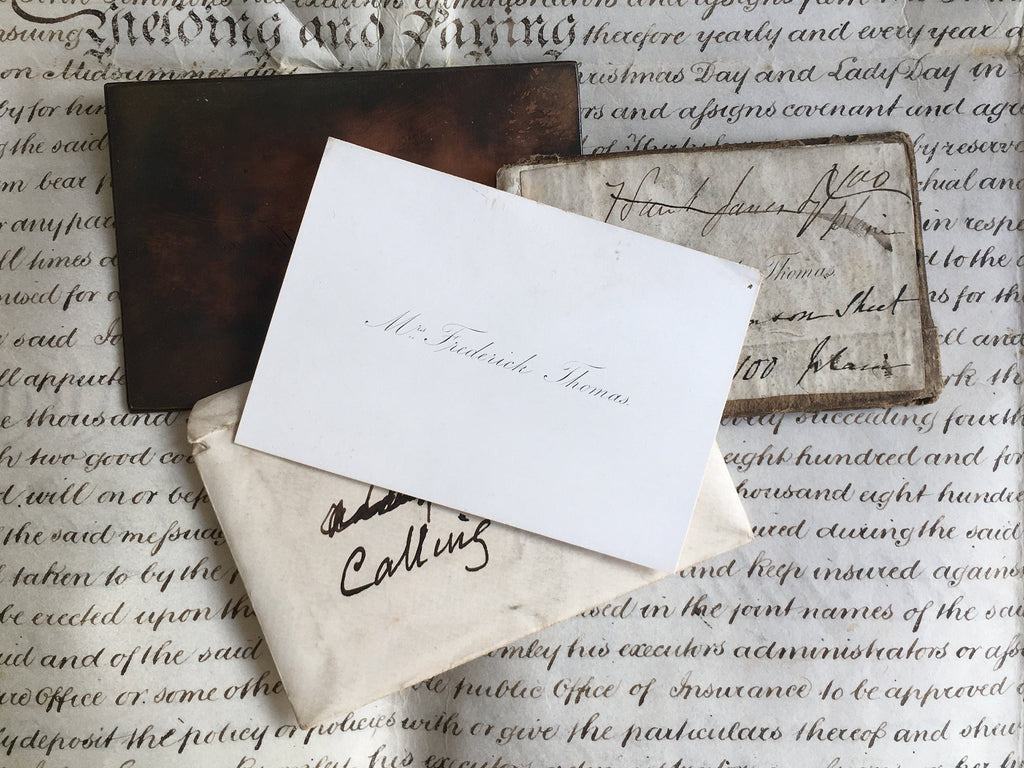 Simmons his
Yielding and Paying therefore yearly and every year
on Midsummer day Christmas Day and Lady Day in
by for him rs and assigns covenant and agre
the said of by reserve
m bear chial and
or any par in respe
ll times d to the
nised for a ns for the
said ll and
ll appurte rk the
e thousand way succeeding fourth
h two good eight hundred and for
d will on or bef thousand eight hundre
the said messuag ured during the said
taken to by the and keep insured agains
be erected upon the used in the joint names of the sai
uid and of the said omley his executors administrators or ass
ure Office or some othe public Office of Insurance to be approved
ly deposit the policy or policies with or give the particulars thereof and shew
his executors
plain
Thomas
Street
100 plain
Mrs. Frederick Thomas.
Calling